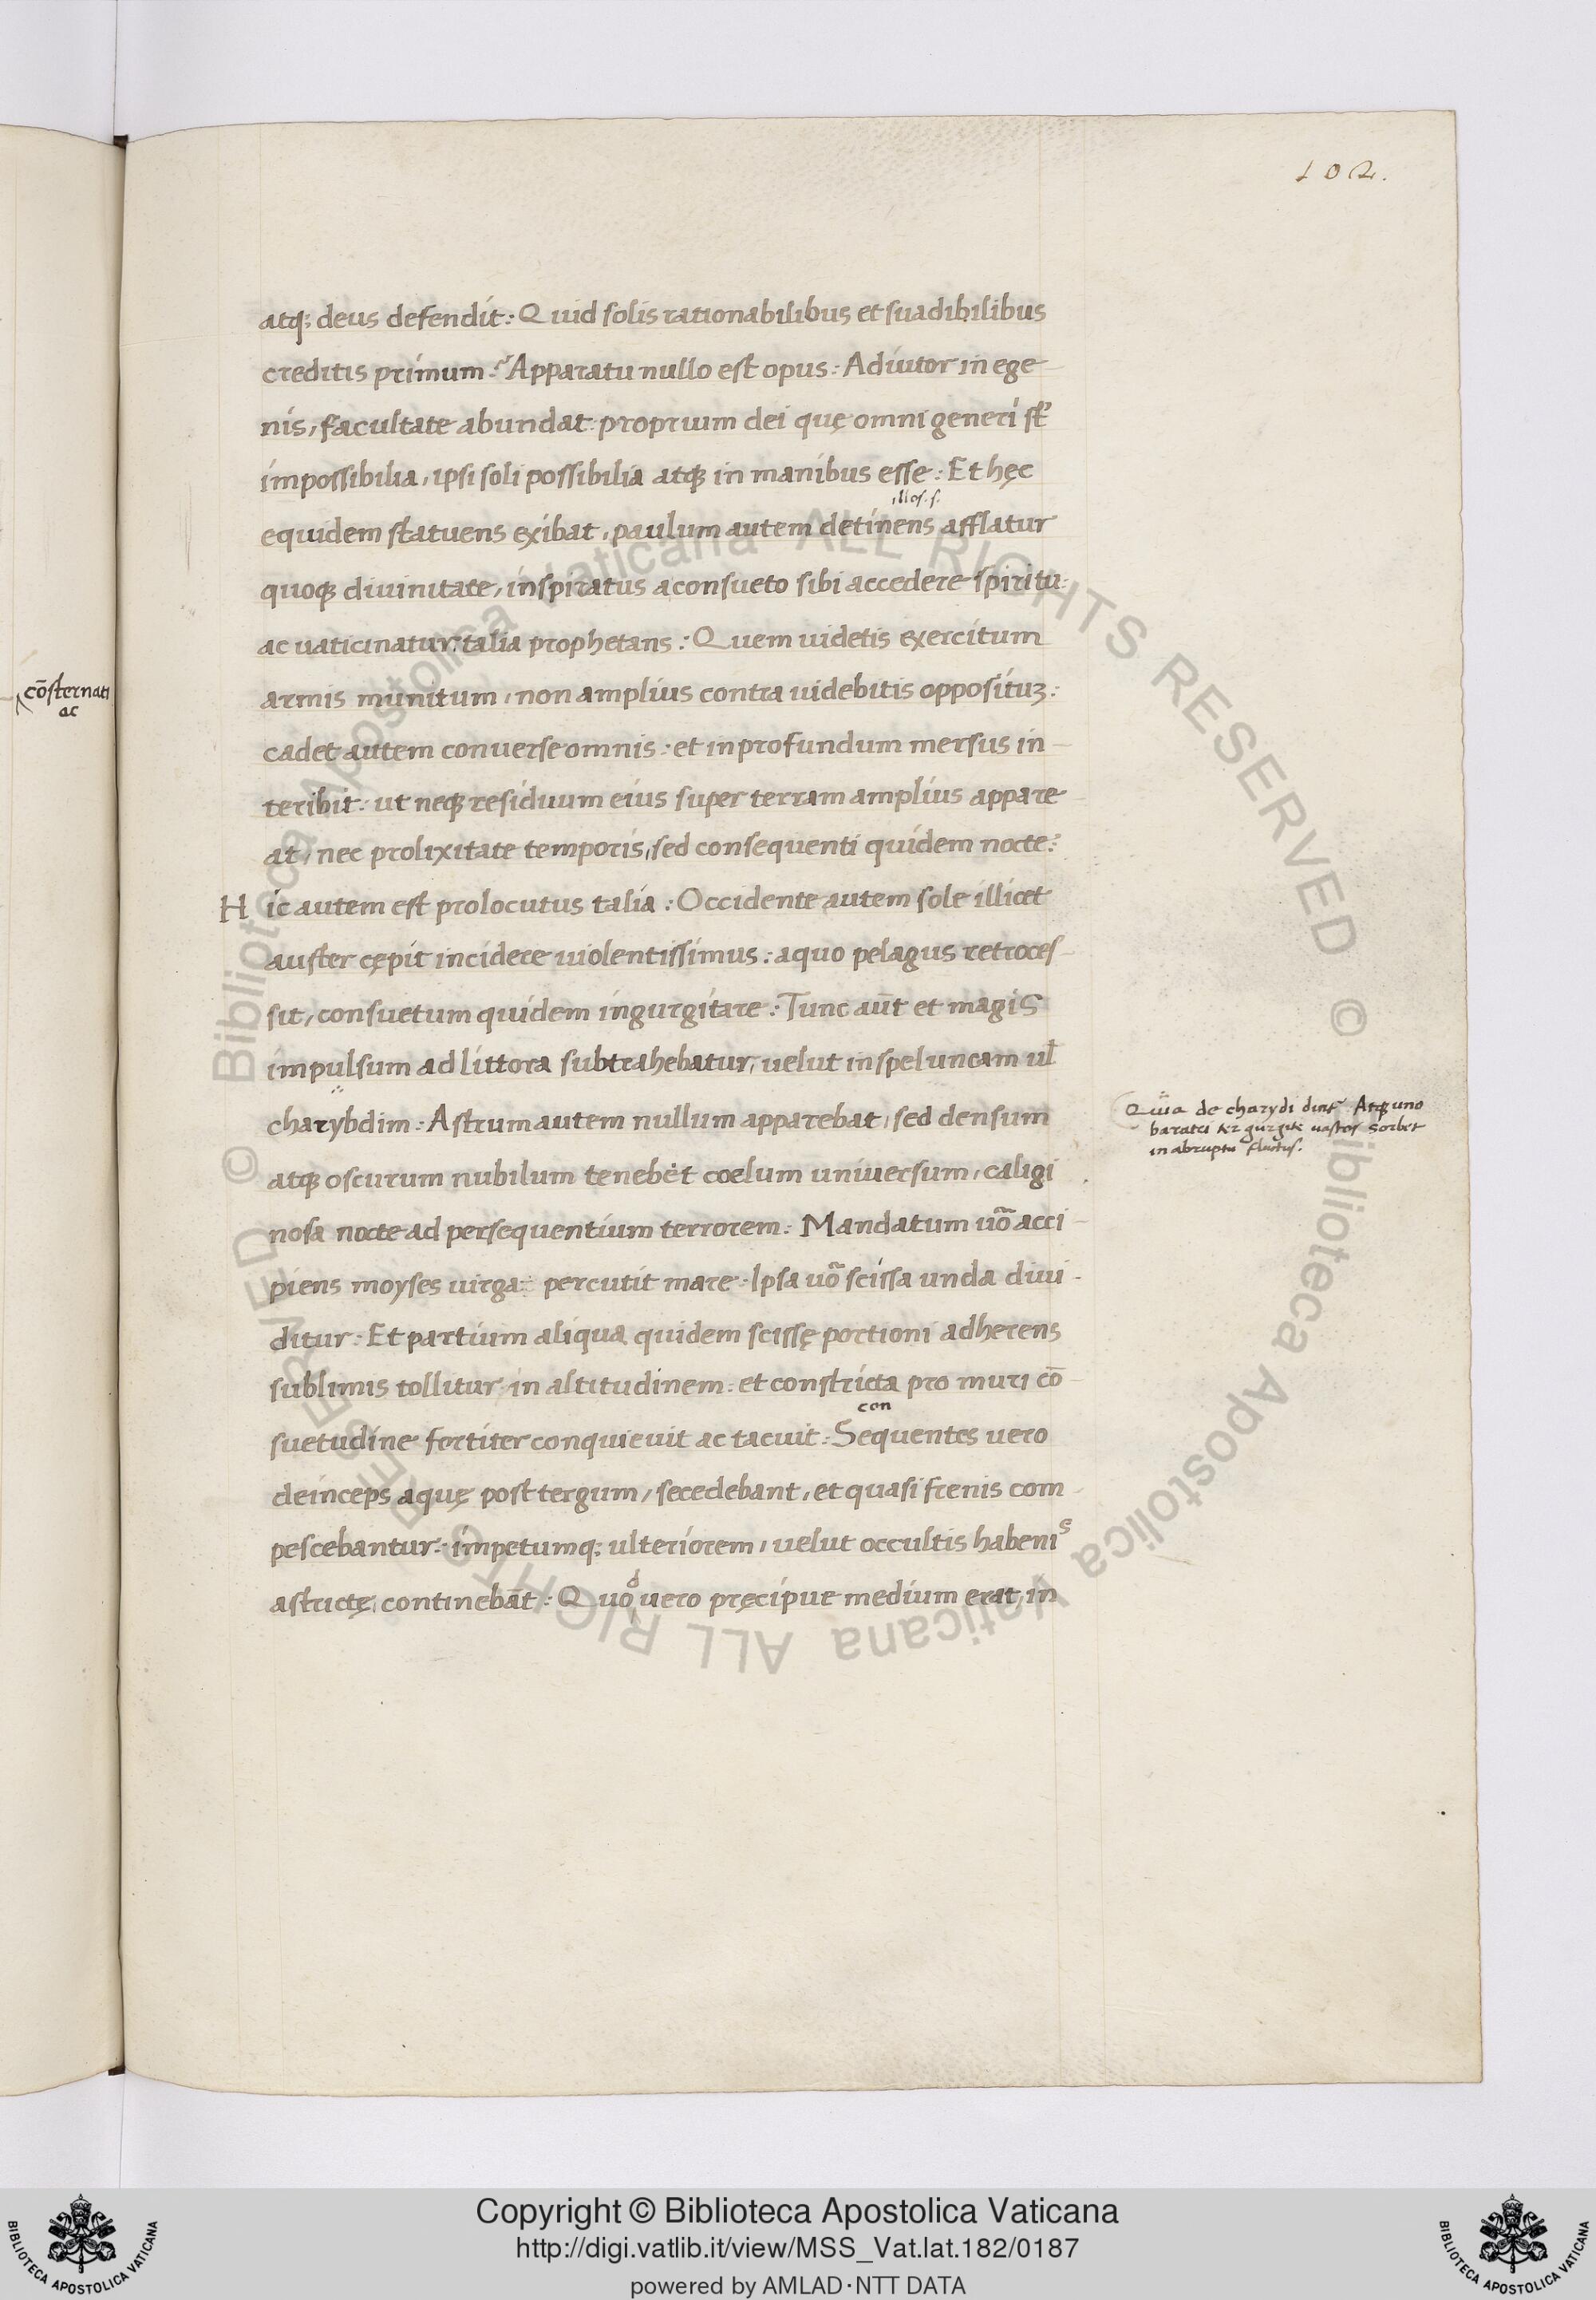 102.
atq; deus defendit: Quid solis rationabilibus et suadibilibus
creditis primum: Apparatu nullo est opus: Adiutor in ege
nis, facultate abundat: proprium dei quę omni generi st̄
impossibilia, ipsi soli possibilia atq; in manibus esse: Et hęc
illos. s.
equidem statuens exibat, paulum autem detinens afflatur
quoq; diuinitate, inspiratus a consueto sibi accedere spiritu:
ac uaticinatur: talia prophetans: Quem uidetis exercitum
armis munitum, non amplius contra uidebitis opposituꝫ:
cōsternati
ac
cadet autem conuerse omnis: et in profundum mersus in
teribit: ut neq; residuum eius super terram amplius appare
at, nec prolixitate temporis, sed consequenti quidem nocte:
Hic autem est prolocutus talia: Occidente autem sole illicet
auster cępit incidere uiolentissimus: a quo pelagus retroces
sit, consuetum quidem ingurgitare: Tunc aūt et magis
impulsum ad littora subtrahebatur, uelut in speluncam ul̄
charybdim: Astrum autem nullum apparebat, sed densum
Quia de charydi dint Atq; uno
baratri ter gurgite uastos sorbet
in abruptu fluctus.
atq; oscurum nubilum tenebet coelum uniuersum, caligi
nosa nocte ad persequentium terrorem: Mandatum uō acci
piens moyses uirga: percutit mare: Ipsa uō scissa unda diui
ditur: Et partium aliqua quidem scissę portioni adherens
sublimis tollitur in altitudinem: et constricta pro muri cō
con
suetudine fortiter conquieuit ac tacuit: Sequentes uero
deinceps aquę post tergum, secedebant, et quasi frenis com
pescebantur: impetumq; ulteriorem, uelut occultis habenis
astrictę, continebāt: Quod uero pręcipue medium erat, in
© Biblioteca Apostolica Vaticana ALL RIGHTS RESERVED © Biblioteca Apostolica Vaticana ALL RIGHTS RESERVED
Copyright © Biblioteca Apostolica Vaticana
http://digi.vatlib.it/view/MSS_Vat.lat.182/0187
powered by AMLAD·NTT DATA
BIBLIOTECA APOSTOLICA VATICANA
BIBLIOTECA APOSTOLICA VATICANA